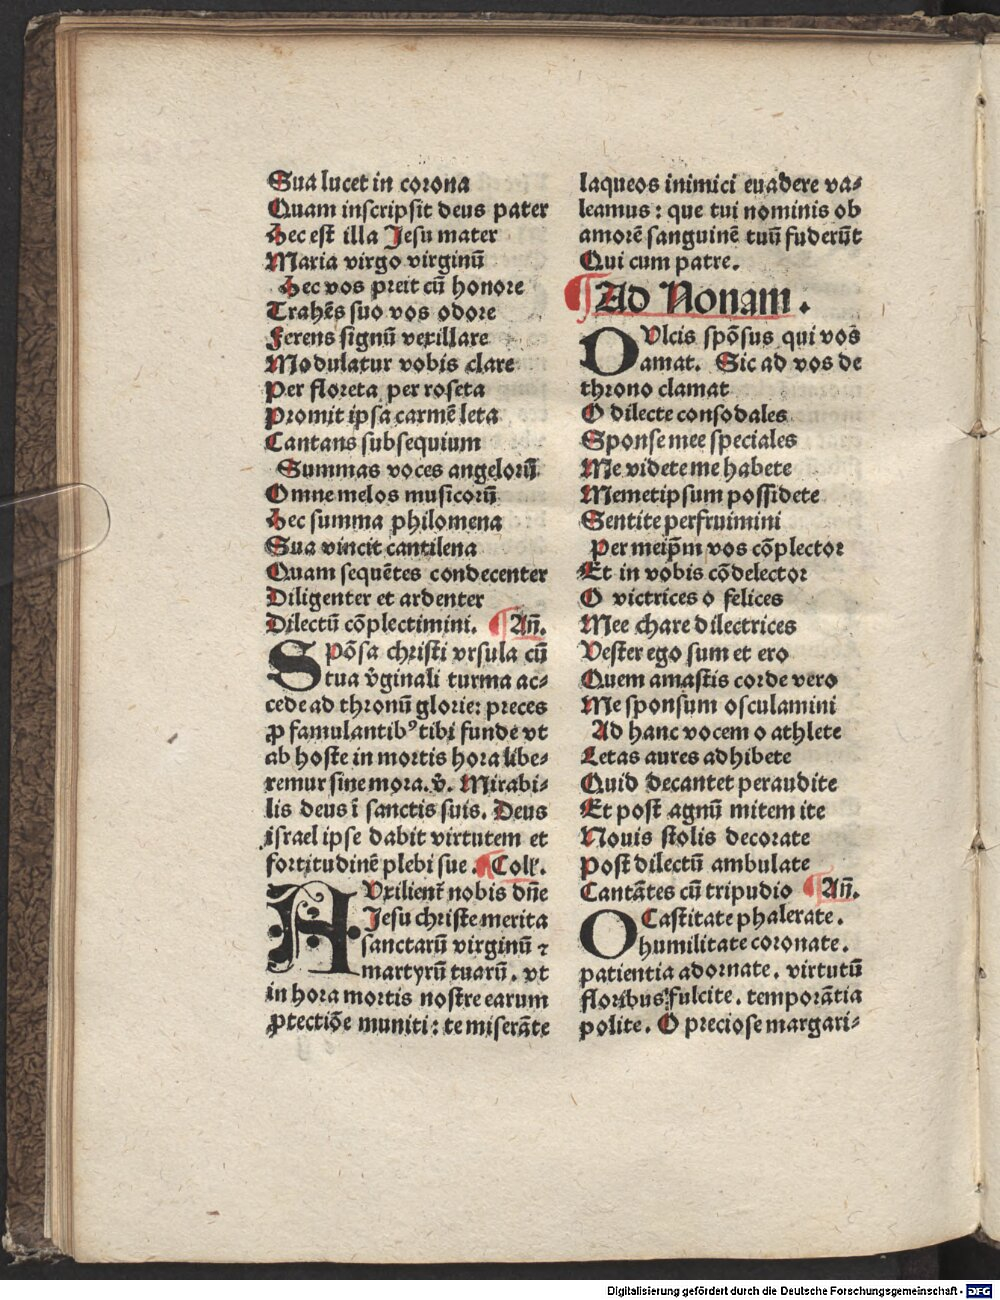 Sua lucet in corona
Quam inscripsit deus pater
Hec est illa Jesu mater
Maria virgo virginū
Hec vos preit cū honore
Trahēs suo vos odore
Ferens signū vexillare
Modulatur vobis clare
Per floreta per roseta
Promit ipsa carmē leta
Cantans subsequium
Summas voces angelorū
Omne melos musicorū
Hec summa philomena
Sua vincit cantilena
Quam sequētes condecenter
Diligenter et ardenter
Dilectū cōplectimini. ¶ Añ.
Spōsa christi vrsula cū
tua v̄ginali turma ac⸗
cede ad thronū glorie: preces
ꝓ famulantibꝰ tibi funde vt
ab hoste in mortis hora libe⸗
remur sine mora. v̄. Mirabi⸗
lis deus ī sanctis suis. Deus
israel ipse dabit virtutem et
fortitudinē plebi sue. ¶ Coll'.
AVxilient᷑ nobis dn̄e
Jesu christe merita
sanctarū virginū ⁊
martyrū tuarū. vt
in hora mortis nostre earum
ꝓtectiōe muniti: te miserāte
laqueos inimici euadere va⸗
leamus: que tui nominis ob
amorē sanguinē tuū fuderūt
Qui cum patre.
¶ Ad Nonam.
DVlcis spōsus qui vos
amat. Sic ad vos de
throno clamat
O dilecte consodales
Sponse mee speciales
Me videte me habete
Memetipsum possidete
Sentite perfruimini
Per meip̄m vos cōplector
Et in vobis cōdelector
O victrices o felices
Mee chare dilectrices
Vester ego sum et ero
Quem amastis corde vero
Me sponsum osculamini
Ad hanc vocem o athlete
Letas aures adhibete
Quid decantet peraudite
Et post agnū mitem ite
Nouis stolis decorate
Post dilectū ambulate
Cantātes cū tripudio ¶ Añ.
O Castitate phalerate.
humilitate coronate.
patientia adornate. virtutū
floribus fulcite. temporātia
polite. O preciose margari⸗
Digitalisierung gefördert durch die Deutsche Forschungsgemeinschaft - DFG